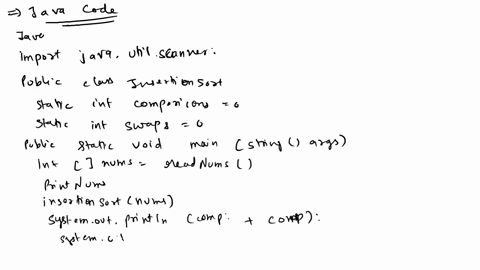 ⇒ Java Code
Java
Import java.util.scanner:
Public class InsertionSort
Static int comparisons = 0
Static int swaps = 0
Public static void main (string () args)
Int [] nums = readNums ()
Print Nums
insertionSort (nums)
System.out.println (comp: + comp):
system.o